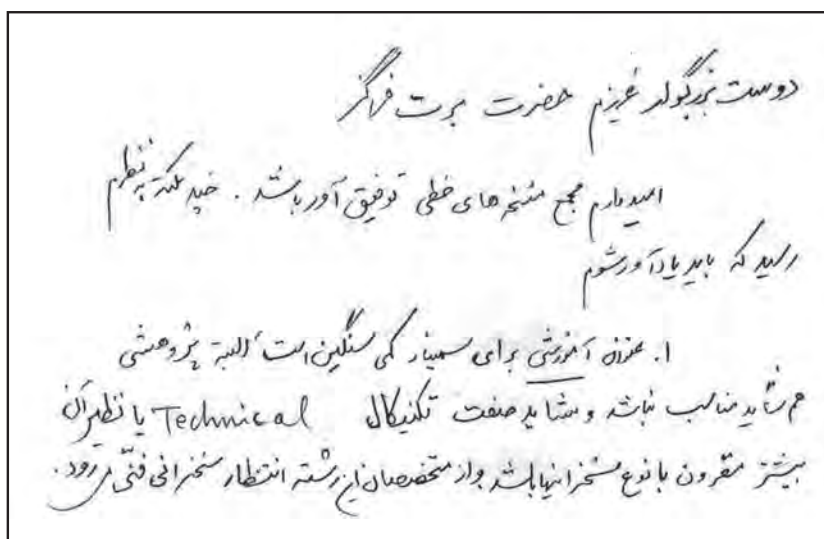 دوست بزرگوار عزیزم حضرت برت فراگنر
امیدوارم مجمع نسخه های خطی توفیق آور باشد. چند نکته به نظرم
رسید که باید یادآور شوم
۱. عنوان آموزشی برای سمینار کمی سنگین است البته پژوهشی
هم شاید مناسب نباشد و شاید صفت تکنیکال Technical یا نظیر آن
بیشتر مقرون با نوع سخنرانیها باشد و از متخصصان این رشته انتظار سخنرانی فنّی می رود.